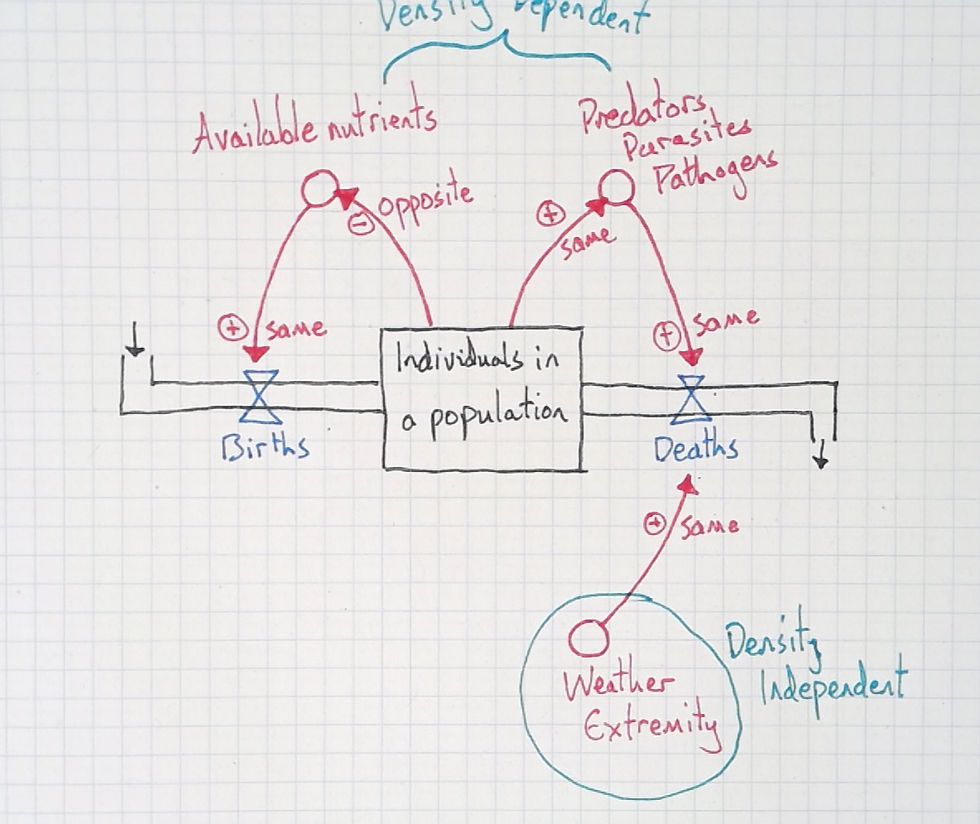 Density Dependent
Available nutrients
Predators,
Parasites
Pathogens
⊖ opposite
⊕
same
⊕ same
⊕ same
Individuals in
a population
Births
Deaths
⊕ same
Density
Independent
Weather
Extremity